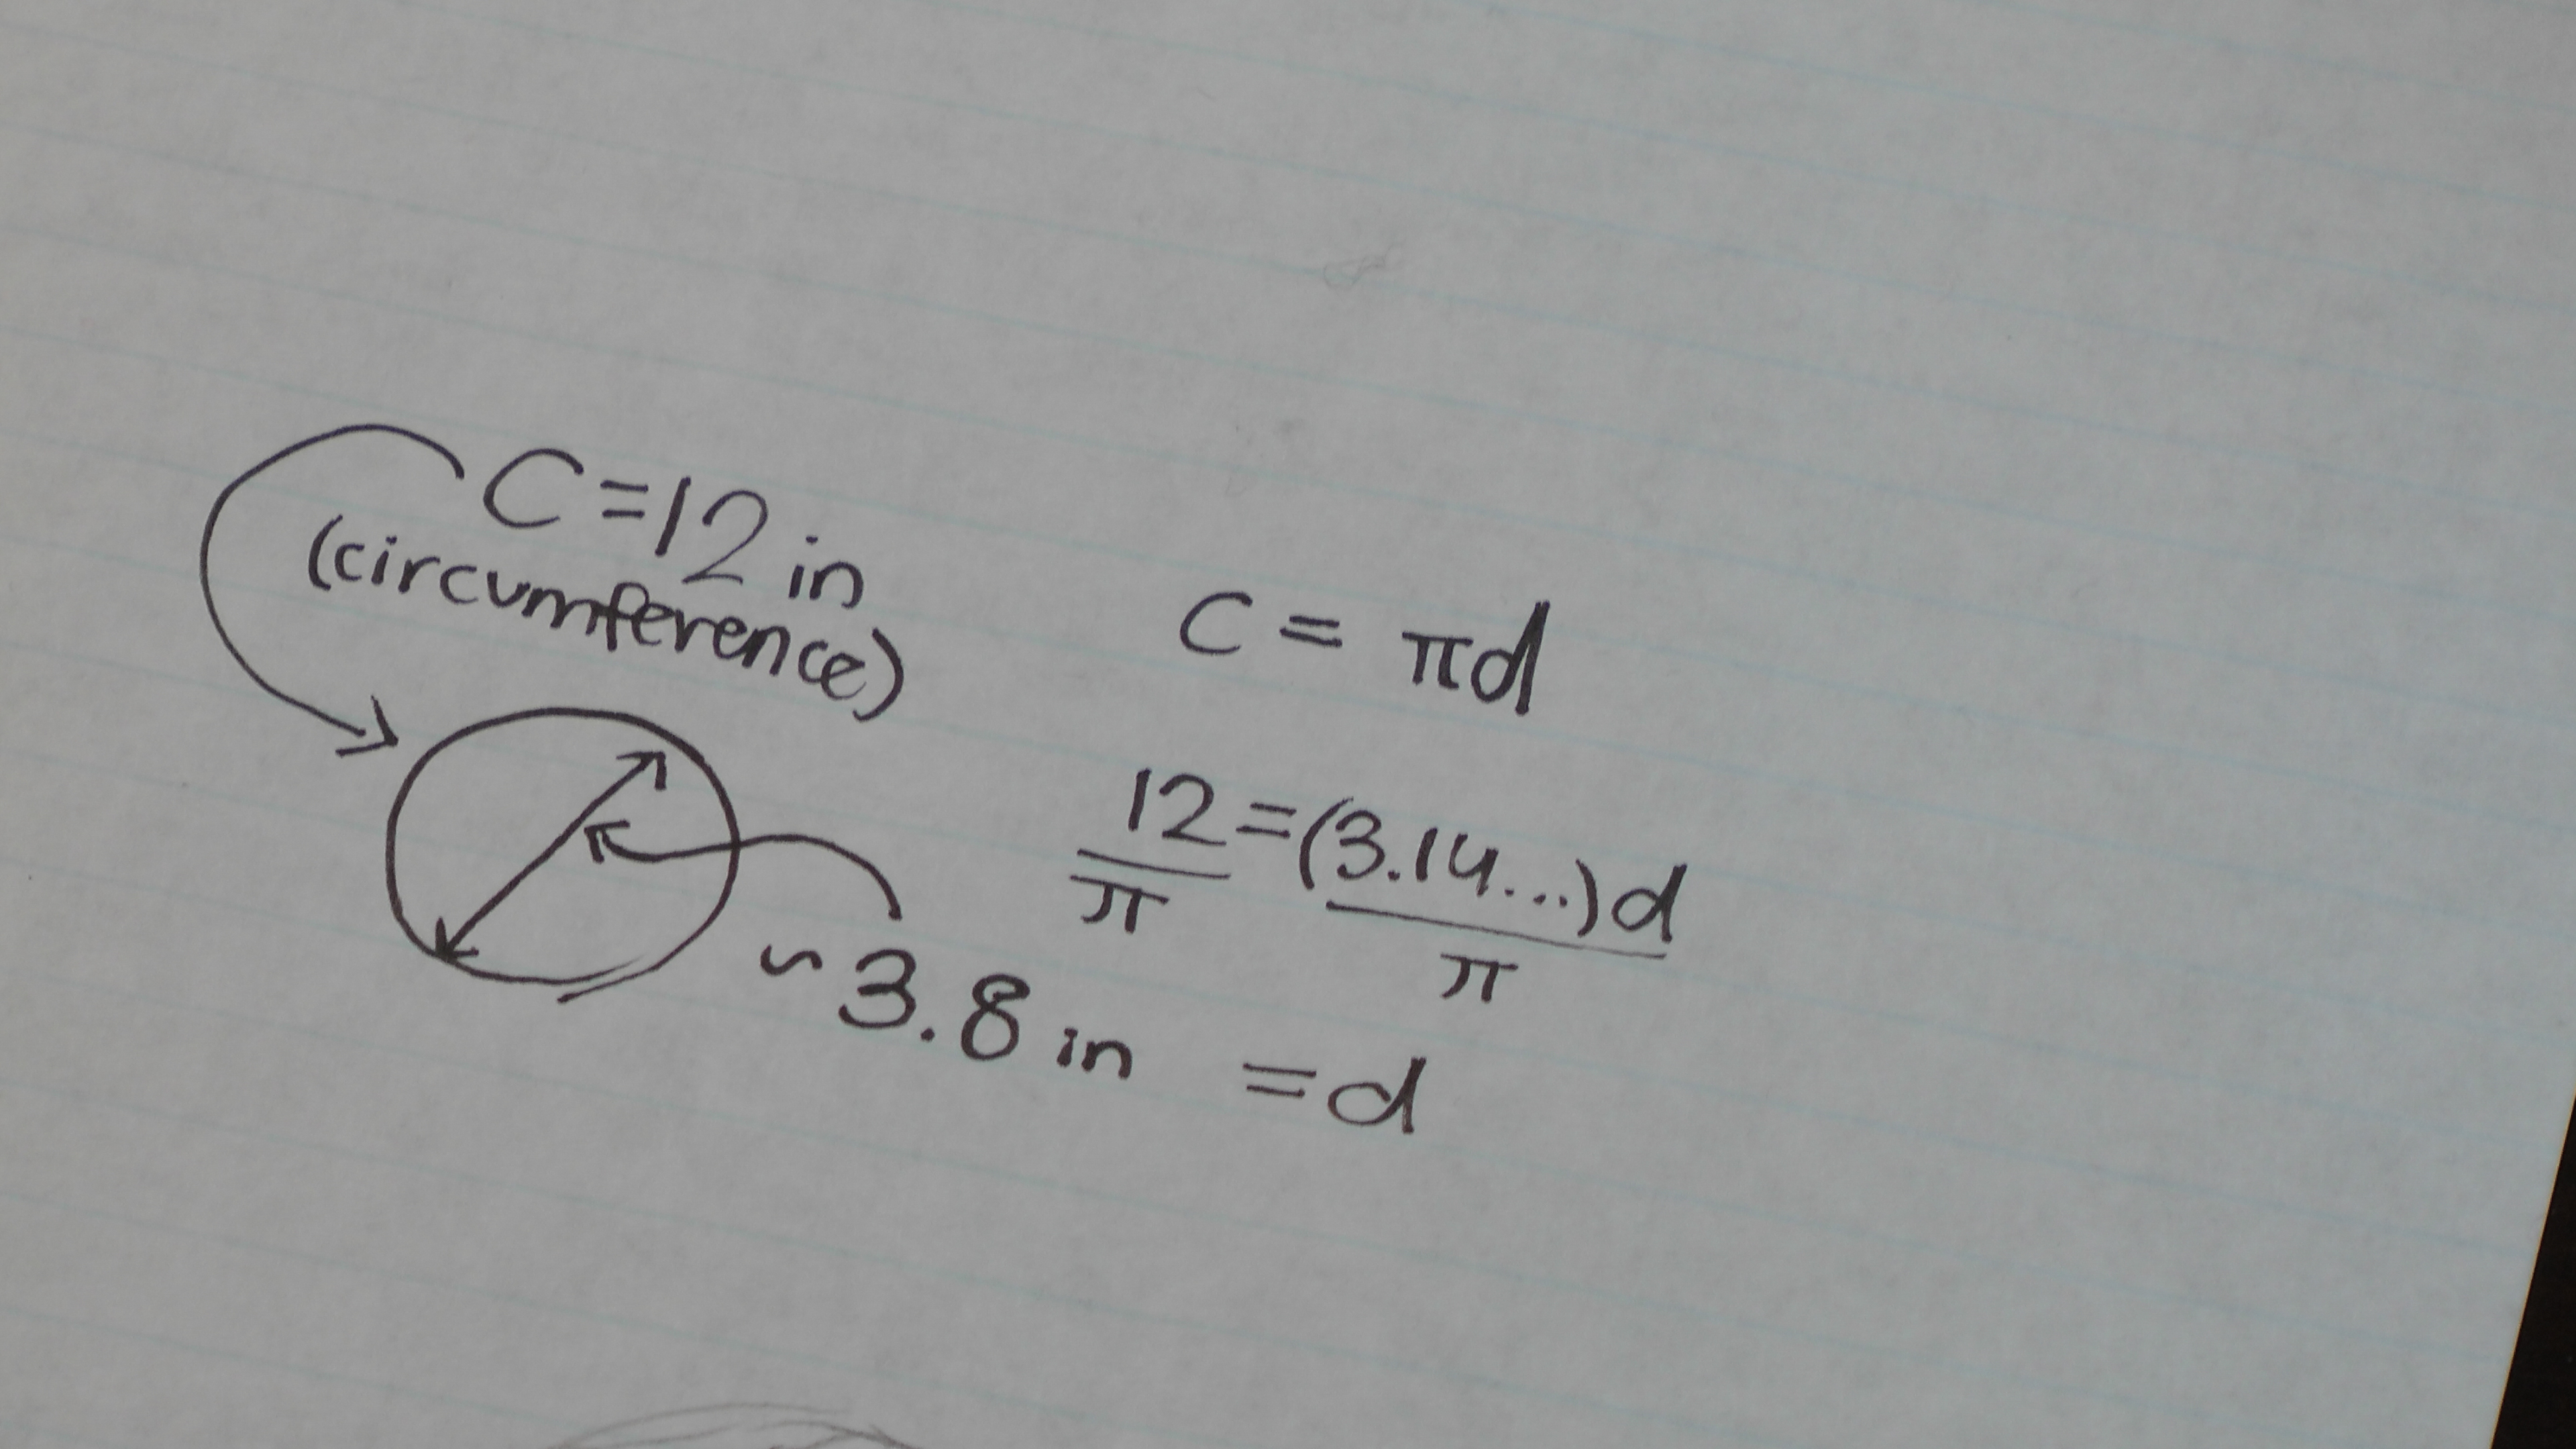 C=12 in
(circumference)
C = πd
12=(3.14...)d
π π
~3.8 in =d